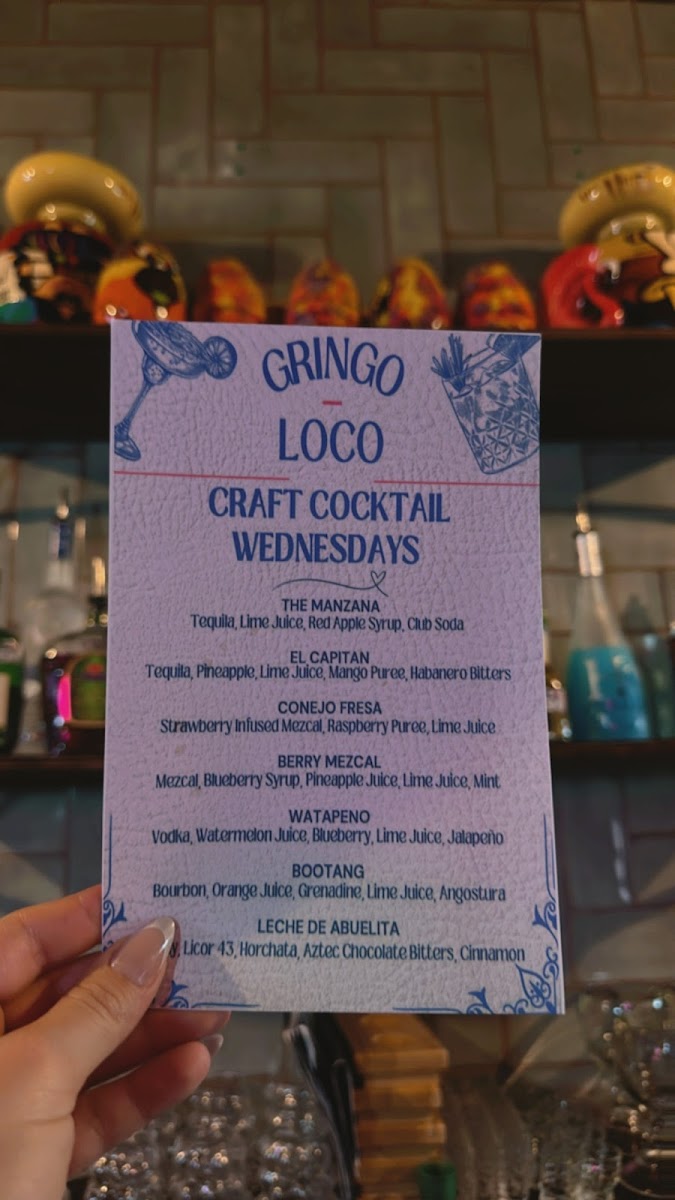 GRINGO
LOCO
CRAFT COCKTAIL
WEDNESDAYS
THE MANZANA
Tequila, Lime Juice, Red Apple Syrup, Club Soda
EL CAPITAN
Tequila, Pineapple, Lime Juice, Mango Puree, Habanero Bitters
CONEJO FRESA
Strawberry Infused Mezcal, Raspberry Puree, Lime Juice
BERRY MEZCAL
Mezcal, Blueberry Syrup, Pineapple Juice, Lime Juice, Mint
WATAPENO
Vodka, Watermelon Juice, Blueberry, Lime Juice, Jalapeño
BOOTANG
Bourbon, Orange Juice, Grenadine, Lime Juice, Angostura
LECHE DE ABUELITA
Licor 43, Horchata, Aztec Chocolate Bitters, Cinnamon